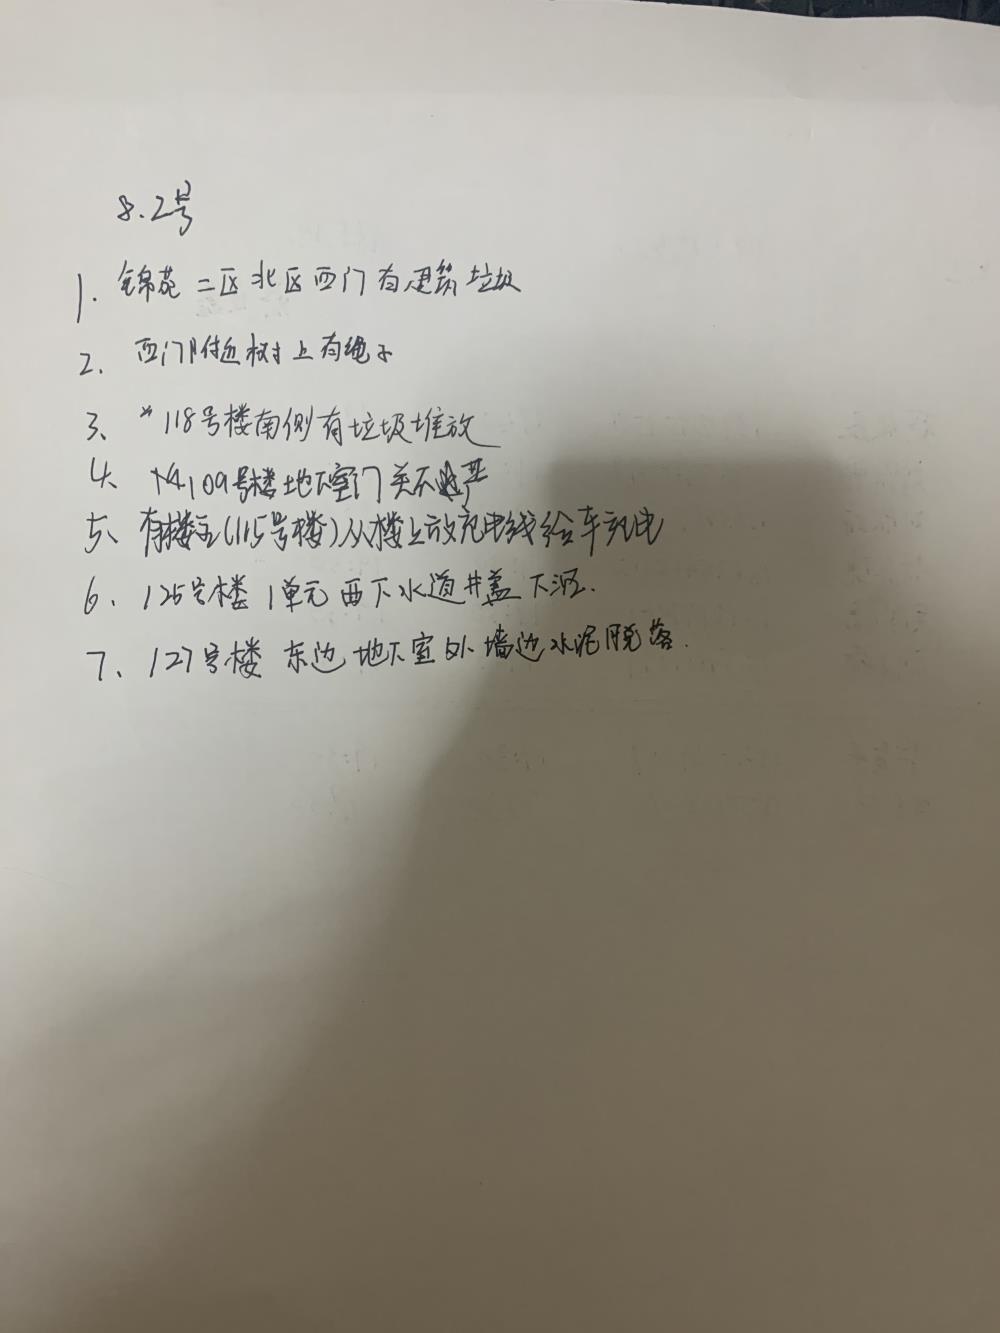 8.2号
1. 锦苑二区北区西门有建筑垃圾
2. 西门附近树上有绳子
3、 118号楼南侧有垃圾堆放
4、 109号楼地下室门关不严
5、 有楼主(115号楼)从楼上放充电线给车充电
6、 125号楼 1单元西下水道井盖下沉.
7、 127号楼 东边地下室外墙边水泥脱落.